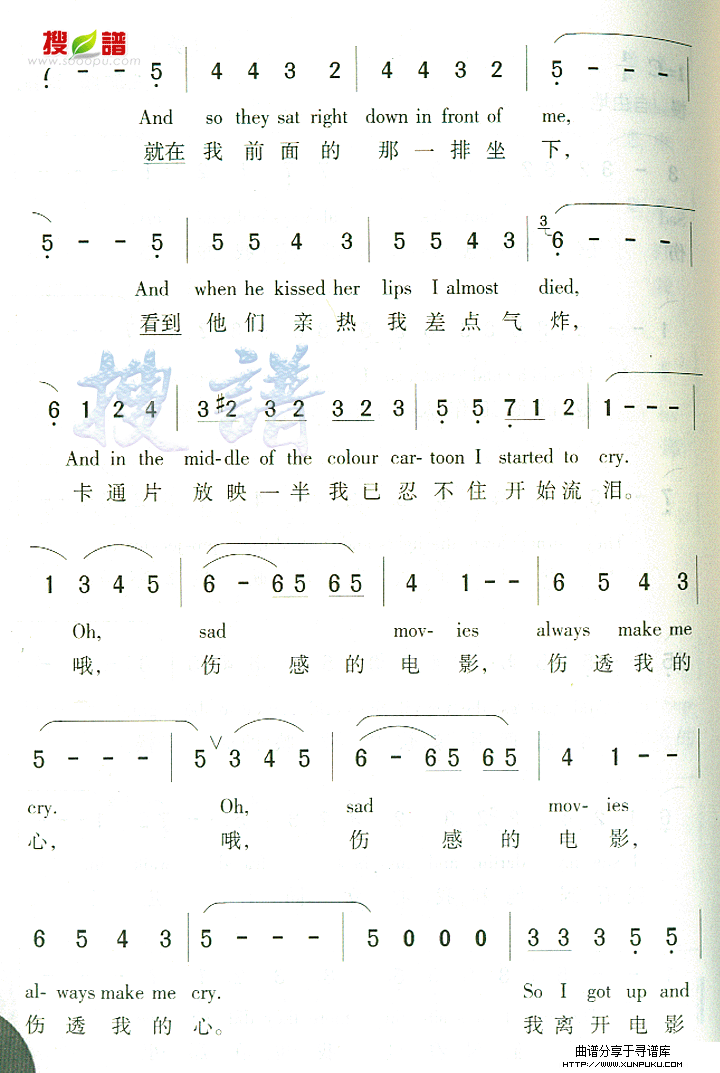 搜谱
www.sooopu.com
7 - - 5 | 4 4 3 2 | 4 4 3 2 | 5 - - - |
And so they sat right down in front of me,
就在 我 前 面 的 那 一 排 坐 下,
5 - - 5 | 5 5 4 3 | 5 5 4 3 | 3 6 - - - |
And when he kissed her lips I almost died,
看到 他 们 亲 热 我 差 点 气 炸,
6 1 2 4 | 3 #2 3 2 3 2 3 | 5 5 7 1 2 | 1 - - - |
And in the mid-dle of the colour car-toon I started to cry.
卡 通 片 放 映 一 半 我 已 忍 不 住 开 始 流 泪。
搜谱
1 3 4 5 | 6 - 6 5 6 5 | 4 1 - - | 6 5 4 3 |
Oh, sad mov- ies always make me
哦, 伤 感 的 电 影, 伤 透 我 的
5 - - - | 5 V 3 4 5 | 6 - 6 5 6 5 | 4 1 - - |
cry. Oh, sad mov- ies
心, 哦, 伤 感 的 电 影,
6 5 4 3 | 5 - - - | 5 0 0 0 | 3 3 3 5 5 |
al- ways make me cry. So I got up and
伤 透 我 的 心。 我 离 开 电 影
曲谱分享于寻谱库
HTTP://WWW.XUNPUKU.COM